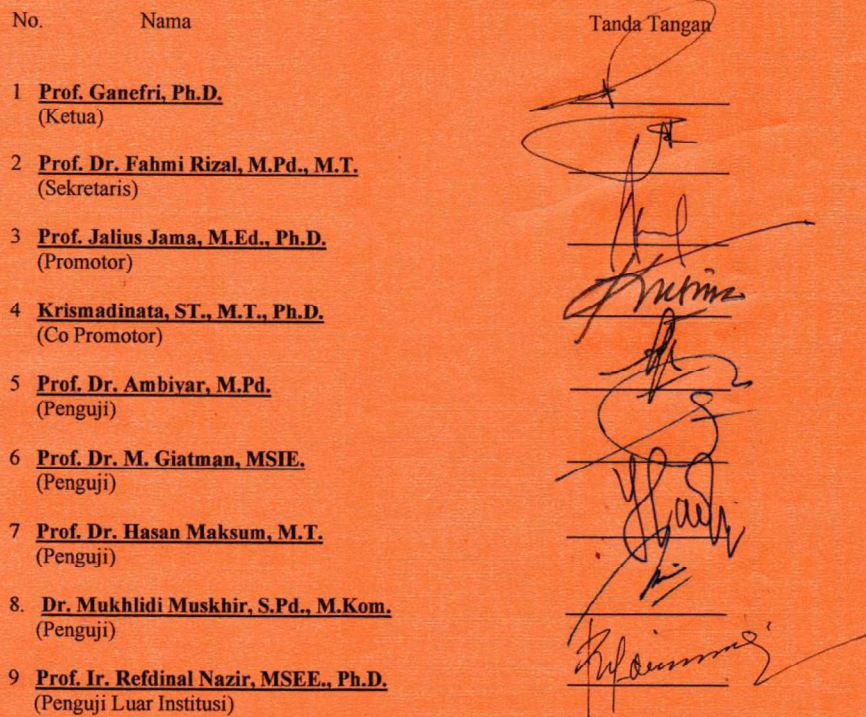 No. Nama Tanda Tangan
1 Prof. Ganefri, Ph.D.
(Ketua)
2 Prof. Dr. Fahmi Rizal, M.Pd., M.T.
(Sekretaris)
3 Prof. Jalius Jama, M.Ed., Ph.D.
(Promotor)
4 Krismadinata, ST., M.T., Ph.D.
(Co Promotor)
5 Prof. Dr. Ambiyar, M.Pd.
(Penguji)
6 Prof. Dr. M. Giatman, MSIE.
(Penguji)
7 Prof. Dr. Hasan Maksum, M.T.
(Penguji)
8. Dr. Mukhlidi Muskhir, S.Pd., M.Kom.
(Penguji)
9 Prof. Ir. Refdinal Nazir, MSEE., Ph.D.
(Penguji Luar Institusi)